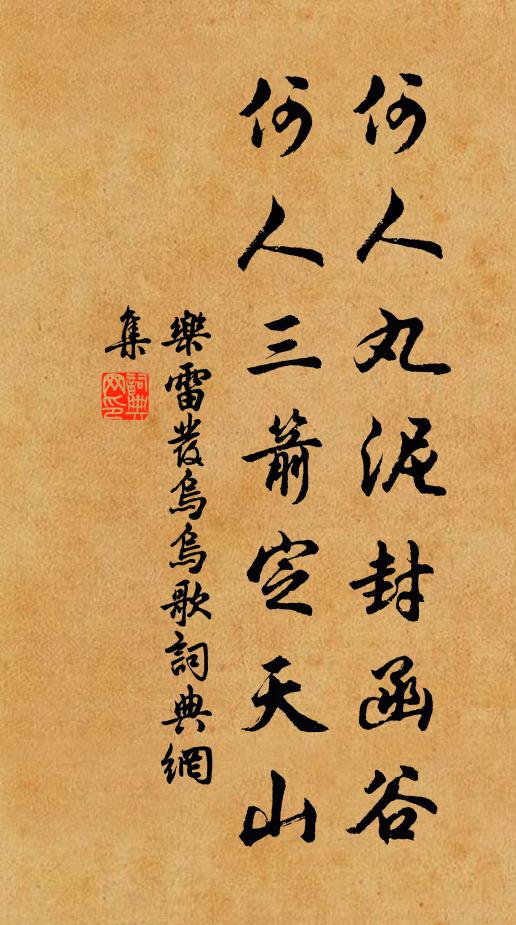 何人丸泥封函谷
何人三箭定天山
樂雷發烏烏歌詞典網
集
詞典
网印